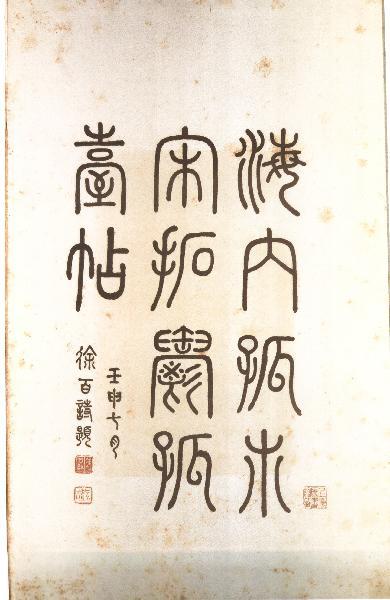 海内孤本
宋拓鬱孤
臺帖
壬申七月
徐百詩題